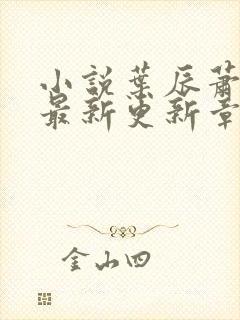 小說葉辰蕭
最新更新章
金山四